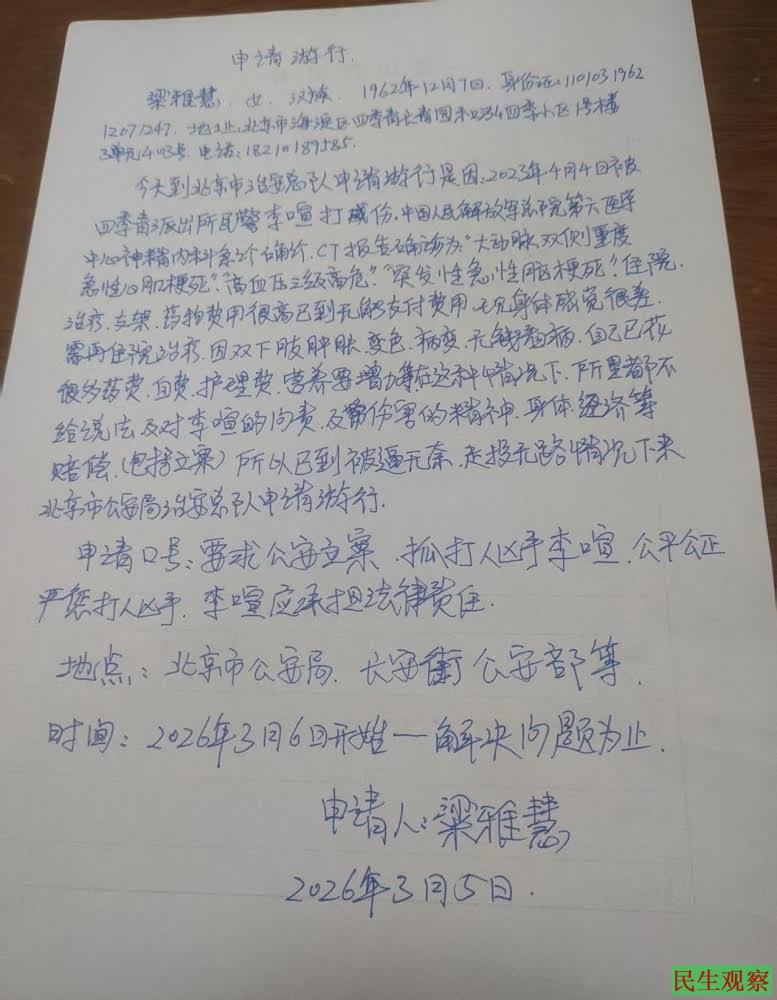 申请游行.
梁雅慧, 女. 汉族. 1962年12月7日. 身份证:1101031962
12071247. 地址:北京市海淀区四季青长青园 四季小区1号楼
3单元403号. 电话:18210189585.
今天到北京市治安总队申请游行是因:2023年4月4日被
四季青派出所民警李喧打成伤.中国人民解放军总院第六医学
中心神精内科 确诊. CT报告确诊为:"大动脉,双侧重度
急性心肌梗死"."高血压三级高危"."突发性急性脑梗死".住院.
治疗.支架.药物费用很高已到无能支付费用 身体感觉很差.
需再住院治疗.因双下肢肿胀.变色.病变.无钱看病.自己已花
很多药费.自费.护理费.营养要增加等在这种情况下.所里都不
给说法及对李喧的问责.及带伤害的精神.身体.经济等
赔偿.(包括立案)所以已到被逼无奈.走投无路情况下来
北京市公安局治安总队申请游行.
申请口号:要求公安立案.抓打人凶手李喧.公平公正
严惩打人凶手.李喧应承担法律责任.
地点:北京市公安局.长安街 公安部等.
时间:2026年3月6日开始一解决问题为止.
申请人:梁雅慧
2026年3月5日.
民生观察